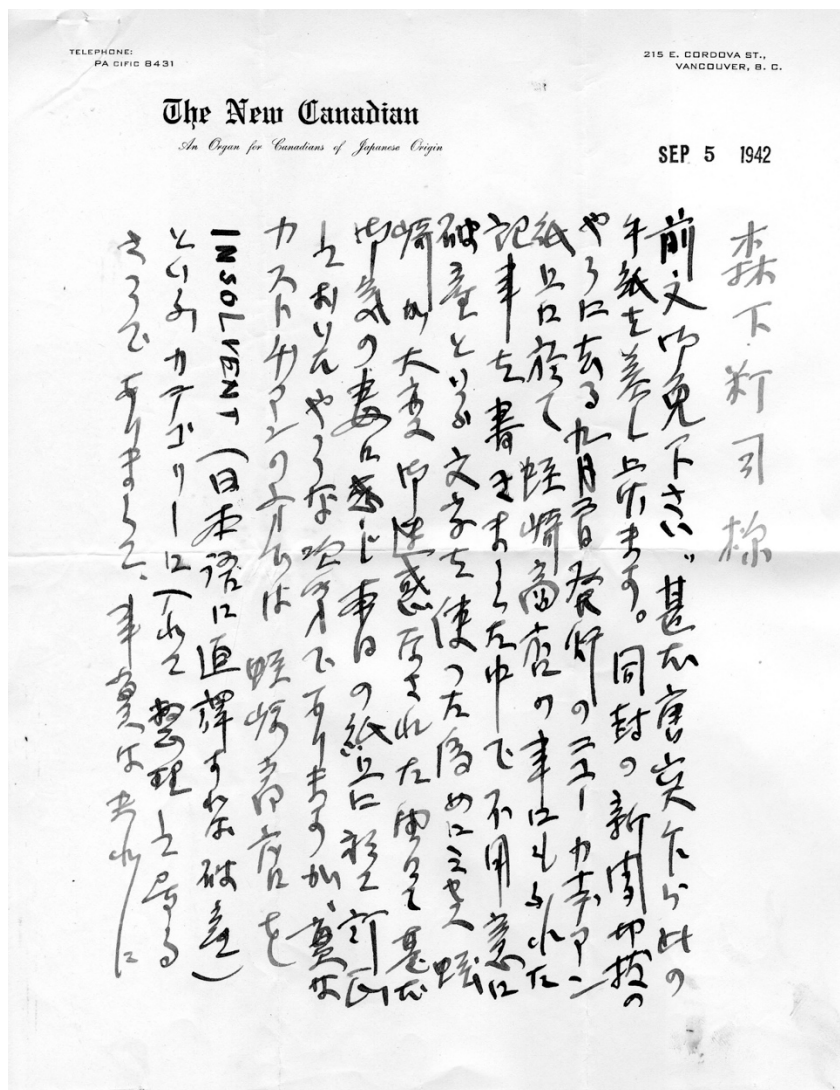 TELEPHONE:
PACIFIC 8431
215 E. CORDOVA ST.,
VANCOUVER, B. C.
The New Canadian
An Organ for Canadians of Japanese Origin
SEP 5 1942
森下 司様
前文御免下さい。甚だ唐突乍ら此の
手紙を差し上げます。同封の新聞切抜の
やうに去る九月二日発行のニューカナデアン
紙上に於て蛭崎商店の事にもふれた
記事を書きました中で不用意に
破産といふ文字を使った為めに 蛭
崎が大変御迷惑なされた 甚だ
御気の毒に感じ本日の紙上に於て訂正
しておいたやうな次第でありますが、実は
カストデアンの方では蛭崎商店を
INSOLVENT(日本語に直譯すれば破産)
といふカテゴリーに入れて整理して居る
さうでありまして、事実は其れに